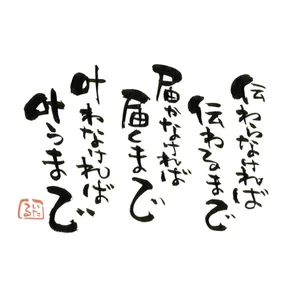 伝わらなければ
伝わるまで
届かなければ
届くまで
叶わなければ
叶うまで